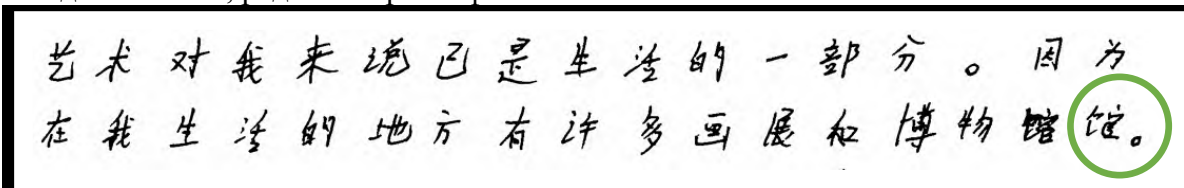 艺术对我来说已是生活的一部分。因为
在我生活的地方有许多画展和博物馆。